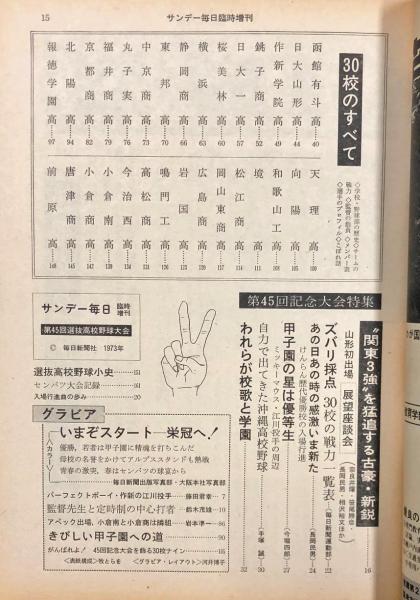 15
サンデー毎日臨時増刊
30校のすべて
◇学校・野球部の歴史◇チームの
戦力◇監督の抱負◇メンバー表
◇選手のプロフィル◇こぼれ話
函館有斗高…40
日大山形高…44
作新学院高…49
銚子商高…52
日大一高…57
桜美林高…60
横浜高…63
静岡商高…66
東邦高…70
中京商高…73
丸子実高…76
福井商高…79
京都商高…82
北陽高…94
報徳学園高…97
天理高…100
向陽高…105
和歌山工高…108
境高…111
松江商高…114
岡山東商高…117
広島商高…120
岩国高…123
鳴門工高…126
高松商高…131
今治西高…134
小倉商高…139
小倉南高…142
唐津商高…145
前原高…148
第45回記念大会特集
“関東3強”を猛追する古豪・新鋭…16
山形初出場 展望座談会
ズバリ採点 30校の戦力一覧表…22
(毎日新聞運動部)
あの日あの時の感激いま新た…24
けんらん歴代優勝校の入場行進
(長岡民男)
甲子園の星は優等生…27
ミッキーマウス・江川投手の周辺
(今堀四郎)
自力で出てきた沖縄高校野球…30
(手塚 誠)
われらが校歌と学園…32
サンデー毎日 臨時増刊
第45回選抜高校野球大会
© 毎日新聞社 1973年
選抜高校野球小史…151
センバツ大会記録…161
入場行進曲の歩み…20
グラビア
〈カラー〉
いまぞスタート―栄冠へ!
優勝、若者は甲子園に精魂を打ちこんだ
母校の名誉をかけてアルプススタンドも熱戦
青春の激突、春はセンバツの球宴から
毎日新聞出版写真部・大阪本社写真部
パーフェクトボーイ・作新の江川投手…藤田君幸…7
監督先生と定時制の中心打者…鈴木茂雄…10
アベック出場、小倉南と小倉商は隣組…岩本準一…86
きびしい甲子園への道…90
がんばれよ! 45回記念大会を飾る30校ナイン…115
〈表紙構成〉牧とらを 〈グラビア・レイアウト〉河井博子